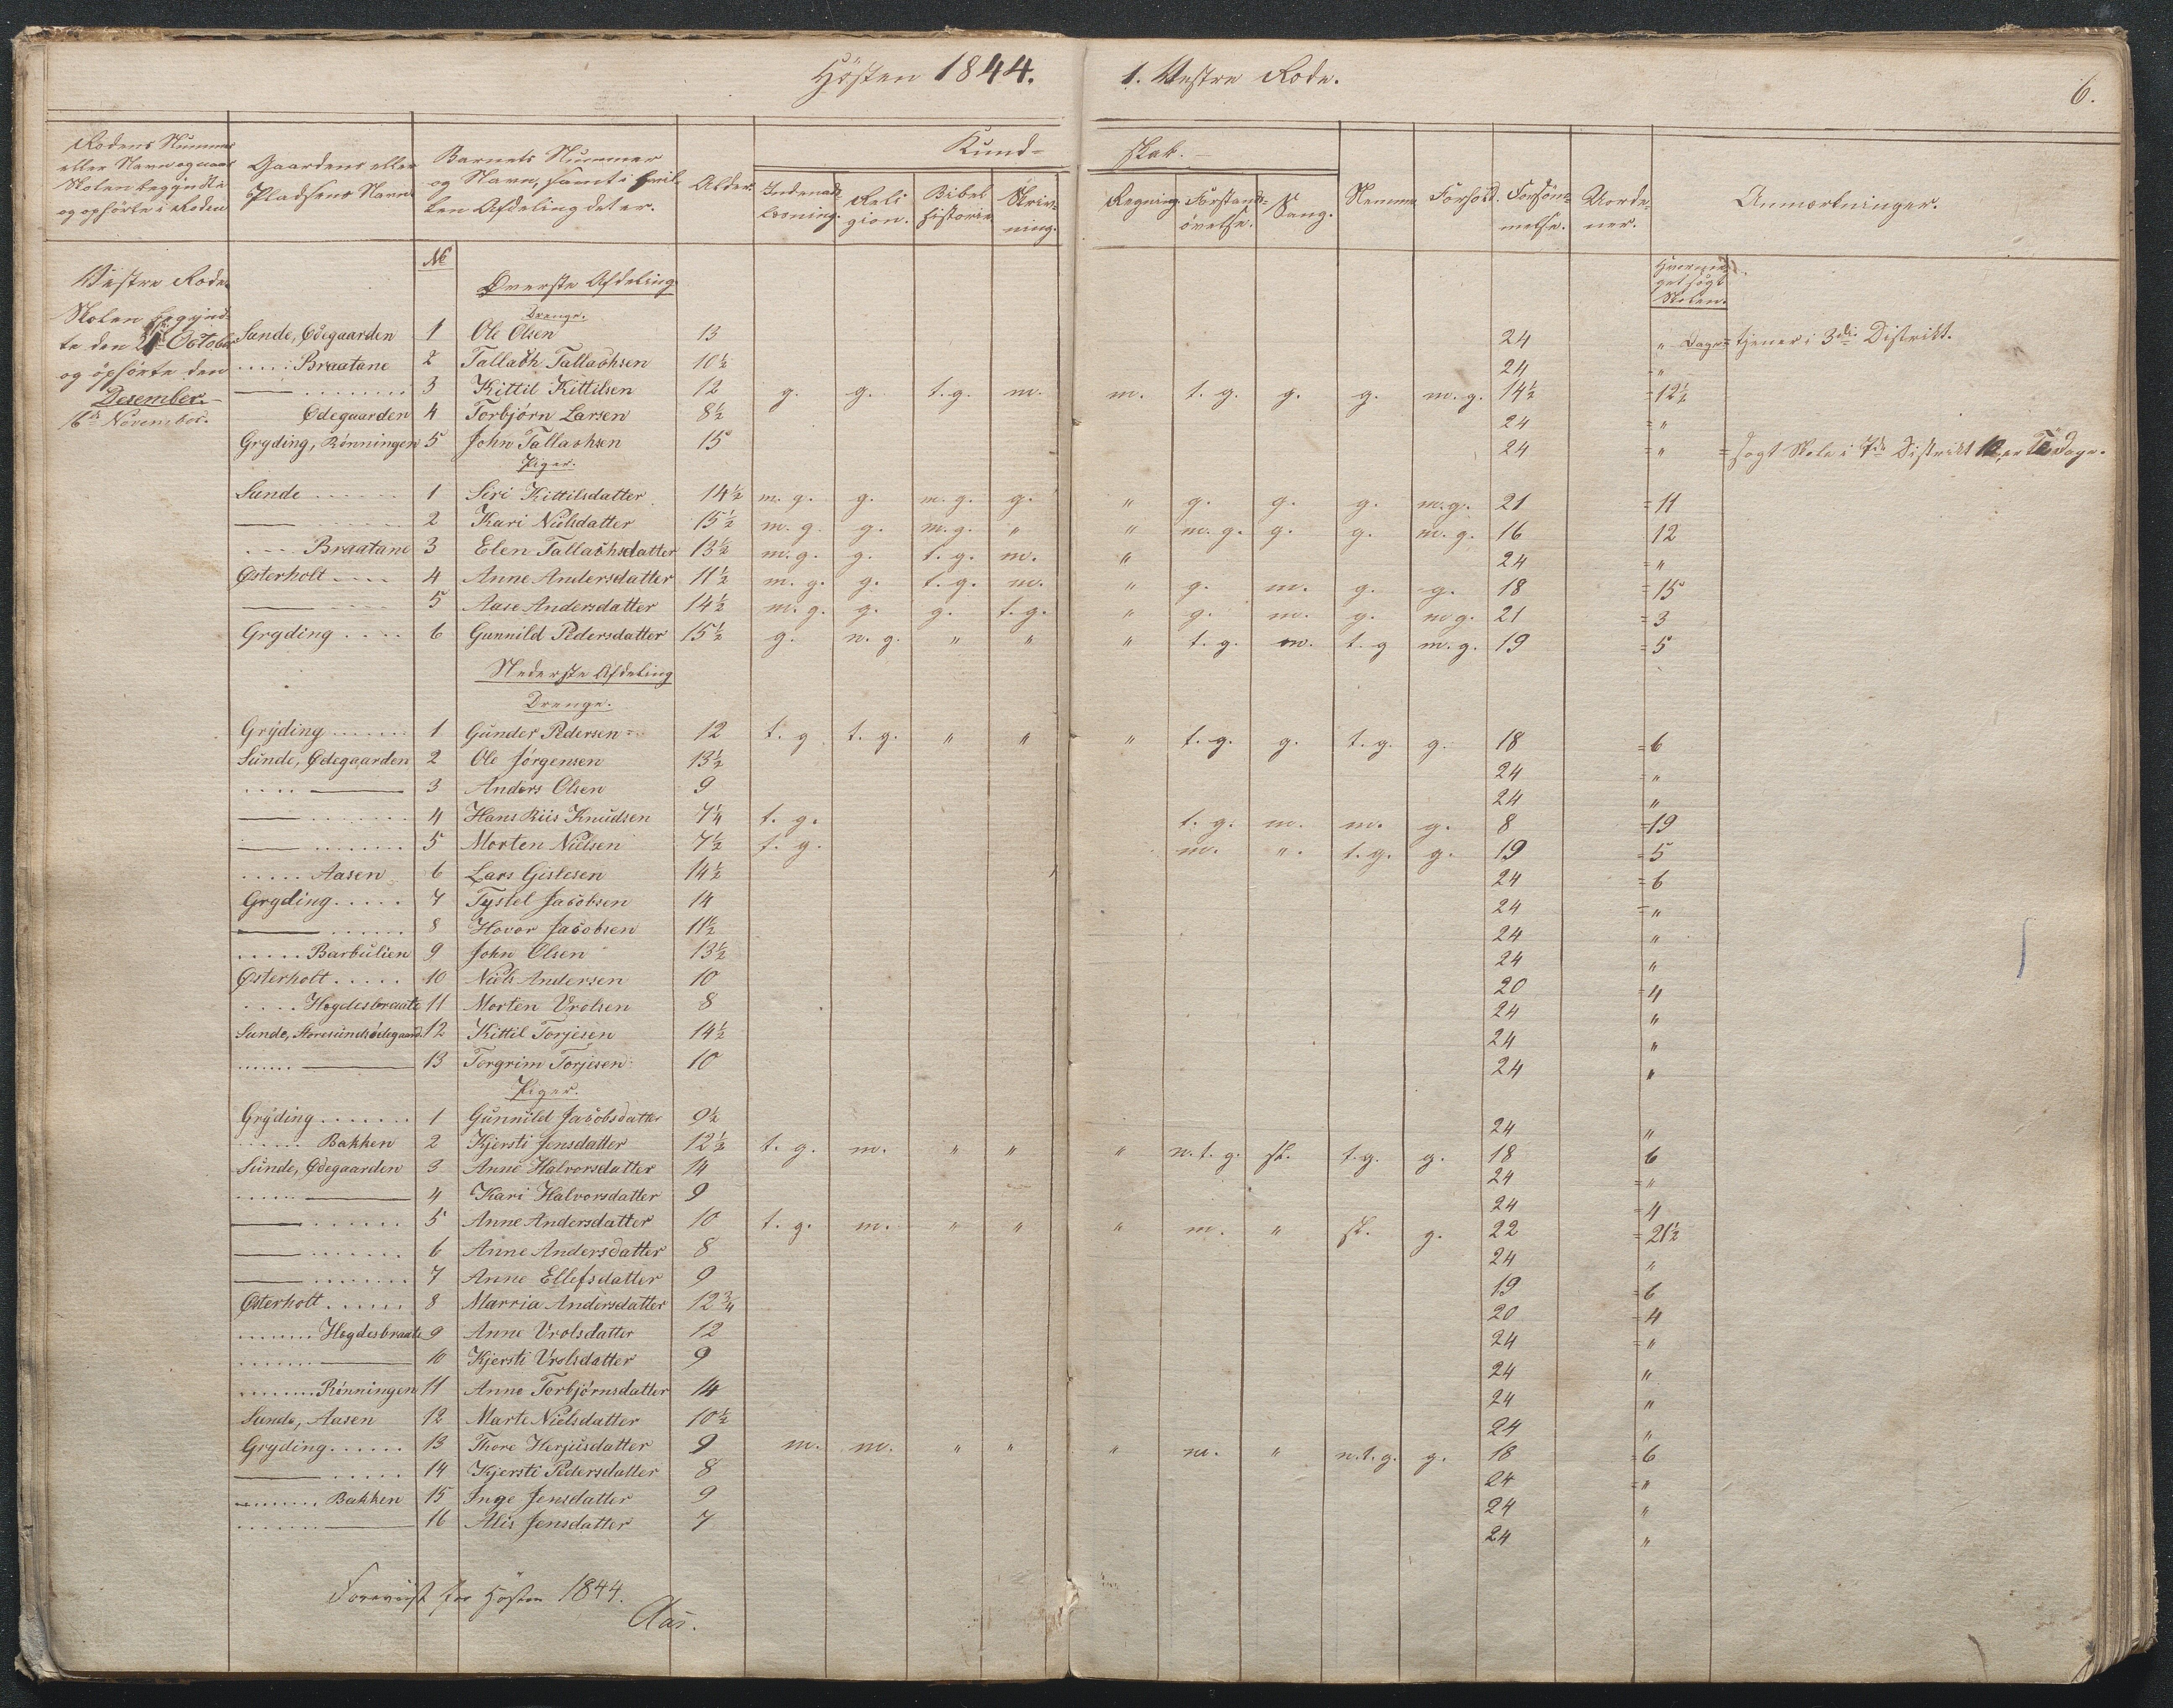 Hösten 1844. 1. Vestre Rode. 6.
Rodens Nummer eller Navn og naar Skolen begyndte og ophörte i Roden
Gaardens eller Pladsens Navn
Barnets Nummer og Navn, samt i hvilken Afdeling det er.
Alder.
Kundskab.
Indenadlæsning.
Religion.
Bibelhistorie
Skrivning.
Regning
Forstandsövelse.
Sang.
Nemme
Forhold.
Forsömmelse.
Uordener.
Anmærkninger.
Vestre Rode.
Skolen begyndte den 21 October
og ophörte den
Desember
16de November.
No
Øverste Afdeling
Hvormeget søgt Skolen.
Drenge.
Sunde, Ødegaarden 1 Ole Olsen 13 24 " Dage = tjener i 3die Distrikt.
..... Braatane 2 Tallach Tallachsen 10½ 24 "
— ........ 3 Kittil Kittilsen 12 g. g. t.g. m. m. t. g. g. g. m. g. 14½ = 12½
Ødegaarden 4 Torbjørn Larsen 8½ 24 = "
Gryding, Rønningen 5 John Tallachsen 15 24 = " = søgt Skole i 7de Distrikt Dage.
Piger.
Sunde ...... 1 Siri Kittilsdatter 14½ m. g. g. m. g. g. " g. g. g. m.g. 21 = 11
— ...... 2 Kari Nielsdatter 15½ m. g. g. m.g. " " m. g. g. g. m. g. 16 12
.... Braatane 3 Elen Tallachsdatter 13½ m. g. g. t. g. m. " 24 = "
Østerholt .... 4 Anne Andersdatter 11½ m. g. g. t. g. m. " g. m. g. g. 18 = 15
— .... 5 Aase Andersdatter 14½ m. g. g. g. t.g. " g. m. g. m g. 21 = 3
Gryding .... 6 Gunnild Pedersdatter 15½ g. n. g. " " " t. g. m. t. g m. g. 19 = 5
Nederste Afdeling
Drenge.
Gryding ....... 1 Gunder Pedersen 12 t. g t. g. " " " t. g. g. t. g. g. 18 = 6
Sunde, Ødegaarden 2 Ole Jørgensen 13½ 24 = "
.... — 3 Anders Olsen 9 24 "
— ....... 4 Hans Riis Knudsen 7¼ t. g. t. g. m. m. g. 8 = 19
— ........ 5 Morten Nielsen 7½ t. g. m. " t. g. g. 19 = 5
..... Aasen 6 Lars Gislesen 14½ 24 = 6
Gryding..... 7 Tystel Jacobsen 14 24 = "
— ...... 8 Hovor Jacobsen 11½ 24 "
..... Barbulien 9 John Olsen 13½ 24 "
Østerholt..... 10 Niels Andersen 10 20 = 4
.... Høgdesbraate 11 Morten Vrolsen 8 24 "
Sunde, Storesundsødegaard. 12 Kittil Torjesen 14½ 24 "
....... — 13 Torgrim Torjesen 10 24 "
Piger.
Gryding....... 1 Gunnild Jacobsdatter 9½ 24 "
...... Bakken 2 Kjersti Jensdatter 12½ t. g. m. " " " n. t. g. sl. t.g. g. 18 6
Sunde, Ødegaarden 3 Anne Halvorsdatter 14 24 = "
...... — 4 Kari Halvorsdatter 9 24 = 4
— ...... 5 Anne Andersdatter 10 t. g. m. " " " m. " sl. g. 22 = 21½
— ....... 6 Anne Andersdatter 8 24 "
— ........ 7 Anne Ellefsdatter 9 19 = 6
Østerholt...... 8 Marria Andersdatter 12¾ 20 = 4
........ Høgdesbraate 9 Anne Vrolsdatter 12 24 = "
....... — 10 Kjersti Vrolsdatter 9 24 "
........ Rønningen 11 Anne Torbjørnsdatter 14 24 "
Sunde, Aasen 12 Marte Nielsdatter 10½ 24 "
Gryding...... 13 Thore Herjusdatter 9 m. m. " " " m. " n.t.g. g. 18 = 6
— ..... 14 Kjersti Pedersdatter 8 24 = "
........ Bakken 15 Inge Jensdatter 9 24 "
....... — 16 Alis Jensdatter 7 24 "
Foreviist for Hösten 1844.
Aas.